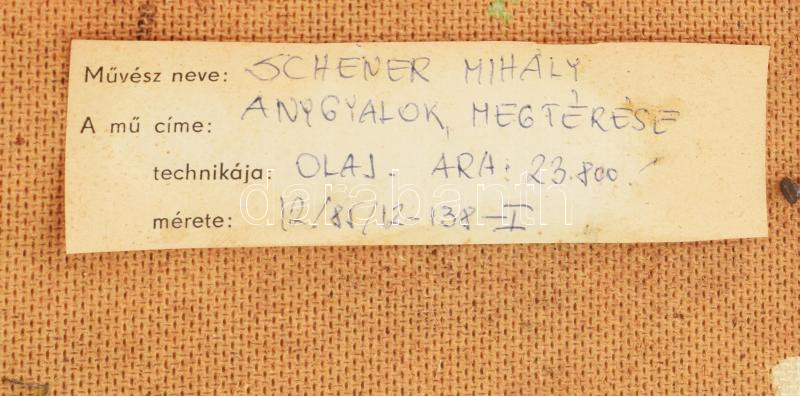 Művész neve: SCHENER MIHÁLY
A mű címe: ANYGYALOK, MEGTÉRÉSE
technikája: OLAJ. ÁRA: 23.800.
mérete: 12/85/12-138-I
darabanth